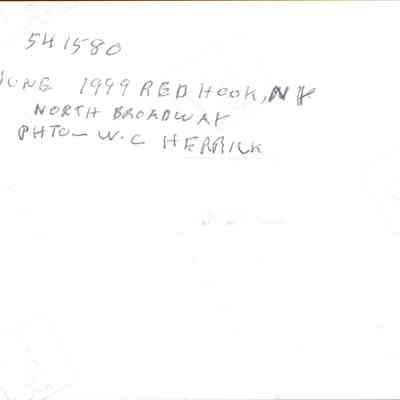 541580
JUNE 1999 RED HOOK, NY
NORTH BROADWAY
PHTO- W.C HERRICK